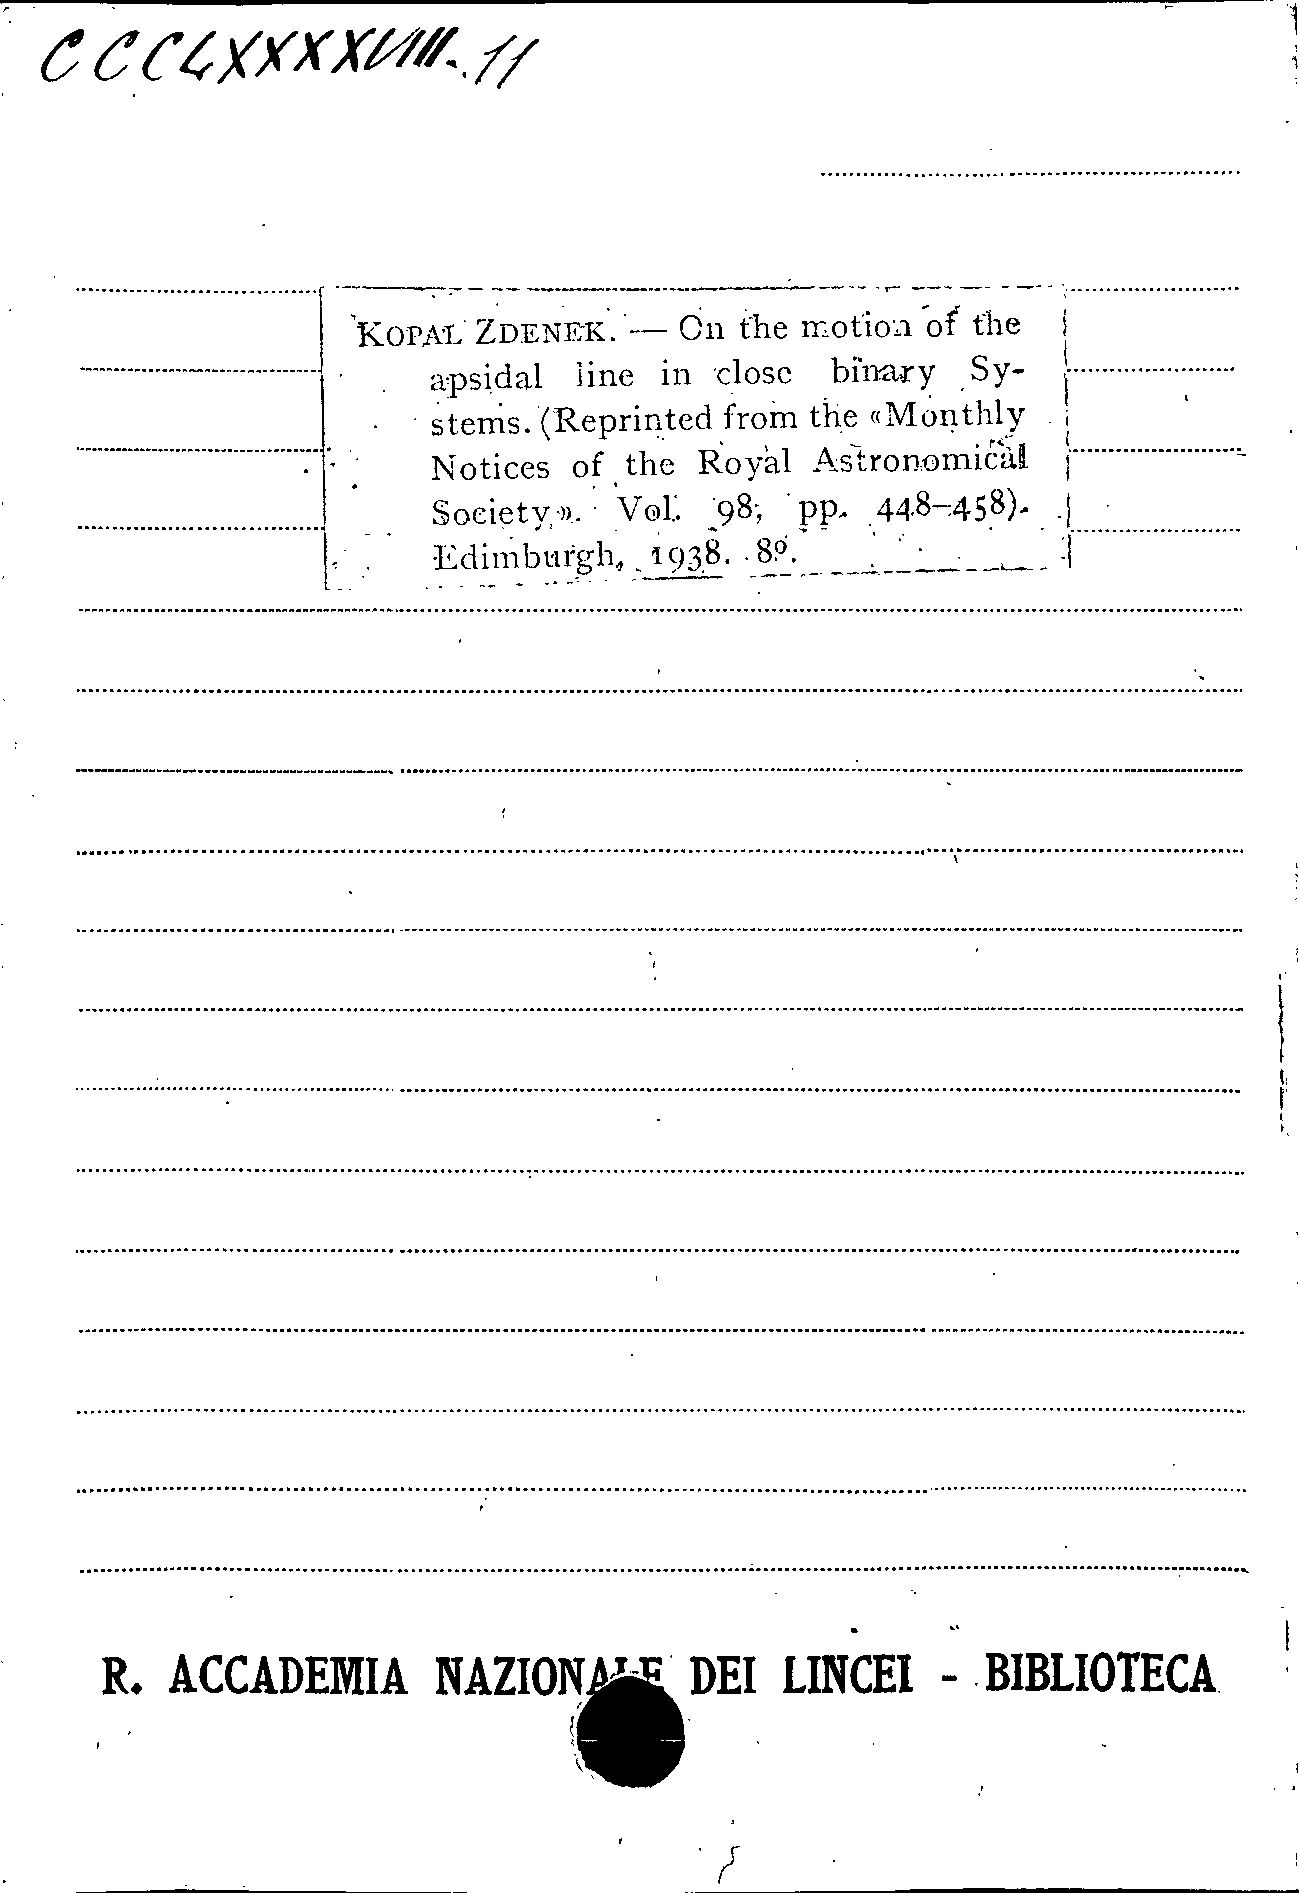 CCCLXXXXVIII. 11
KOPAL ZDENEK. — On the motion of the
apsidal line in close binary Sy-
stems. (Reprinted from the «Monthly
Notices of the Royal Astronomical
Society». Vol. 98, pp. 448–458).
Edimburgh, 1938. 8º.
R. ACCADEMIA NAZIONALE DEI LINCEI - BIBLIOTECA